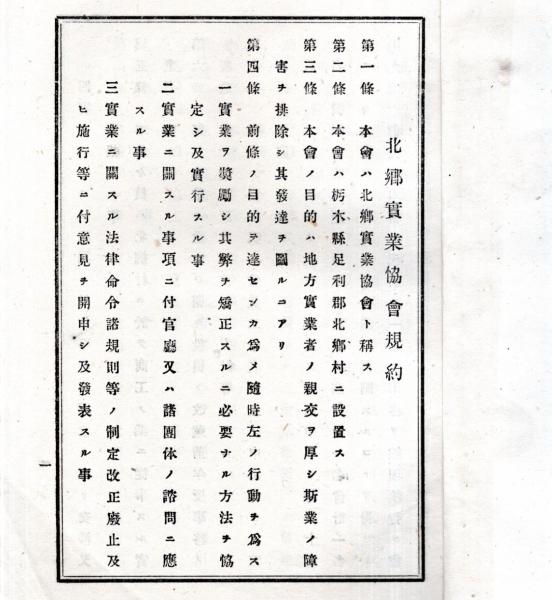 北鄕實業協會規約
第一條 本會ハ北鄕實業協會ト稱ス
第二條 本會ハ栃木縣足利郡北鄕村ニ設置ス
第三條 本會ノ目的ハ地方實業者ノ親交ヲ厚シ斯業ノ障
害ヲ排除シ其發達ヲ圖ルニアリ
第四條 前條ノ目的ヲ達センカ爲メ隨時左ノ行動ヲ爲ス
一實業ヲ奬勵シ其弊ヲ矯正スルニ必要ナル方法ヲ恊
定シ及實行スル事
二實業ニ關スル事項ニ付官廳又ハ諸團体ノ諮問ニ應
スル事
三實業ニ關スル法律命令諸規則等ノ制定改正廢止及
ヒ施行等ニ付意見ヲ開申シ及發表スル事
一